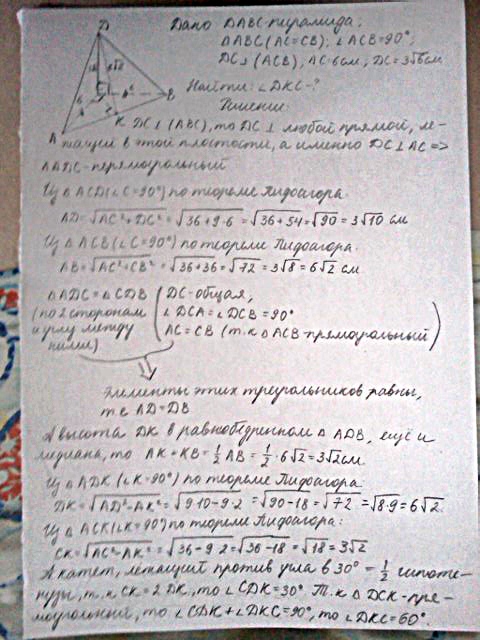 Дано DABC-пирамида;
△ABC (AC=CB), ∠ACB=90°,
DC⊥(ACB), AC=6см, DC=3√6см
Найти: ∠DKC-?
Решение:
D
6√2
B
A
K
DC⊥(ABC), то DC⊥ любой прямой, ле-
жащей в этой плоскости, а именно DC⊥AC =>
△ADC-прямоугольный
Из △ACD (∠C=90°) по теореме Пифагора.
AD=√AC²+DC²=√36+9·6=√36+54=√90=3√10 см
Из △ACB (∠C=90°) по теореме Пифагора.
AB=√AC²+CB²=√36+36=√72=3√8=6√2 см.
△ADC=△CDB (DC-общая,
(по 2 сторонам ∠DCA=∠DCB=90°
и углу между AC=CB (т.к △ACB-прямоугольный)
ними)
Элементы этих треугольников равны,
т.е AD=DB
А высота DK в равнобедренном △ADB, ещё и
медиана, то AK=KB=1/2 AB=1/2·6√2=3√2см.
Из △ADK (∠K=90°) по теореме Пифагора.
DK=√AD²-AK²=√9·10-9·2=√90-18=√72=√8·9=6√2.
Из △ACK (∠K=90°) по теореме Пифагора:
CK=√AC²-AK²=√36-9·2=√36-18=√18=3√2
А катет, лежащий против угла в 30°=1/2 гипоте-
нузы, т.к CK=2DK, то ∠CDK=30°. Т.к △DCK-пря-
моугольный, то ∠CDK+∠DKC=90°, то ∠DKC=60°.